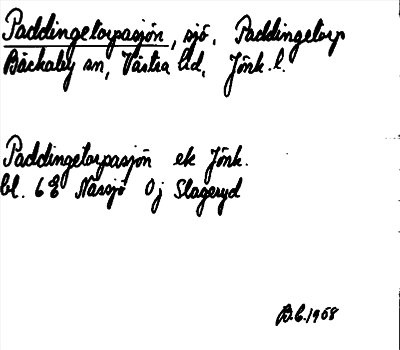 Paddingetorpasjön, sjö. Paddingetorp
Bäckaby sn, Västra hd, Jönk. l.
Paddingetorpasjön ek Jönk.
bl. 6E Nässjö 0j Slageryd
B.C. 1968